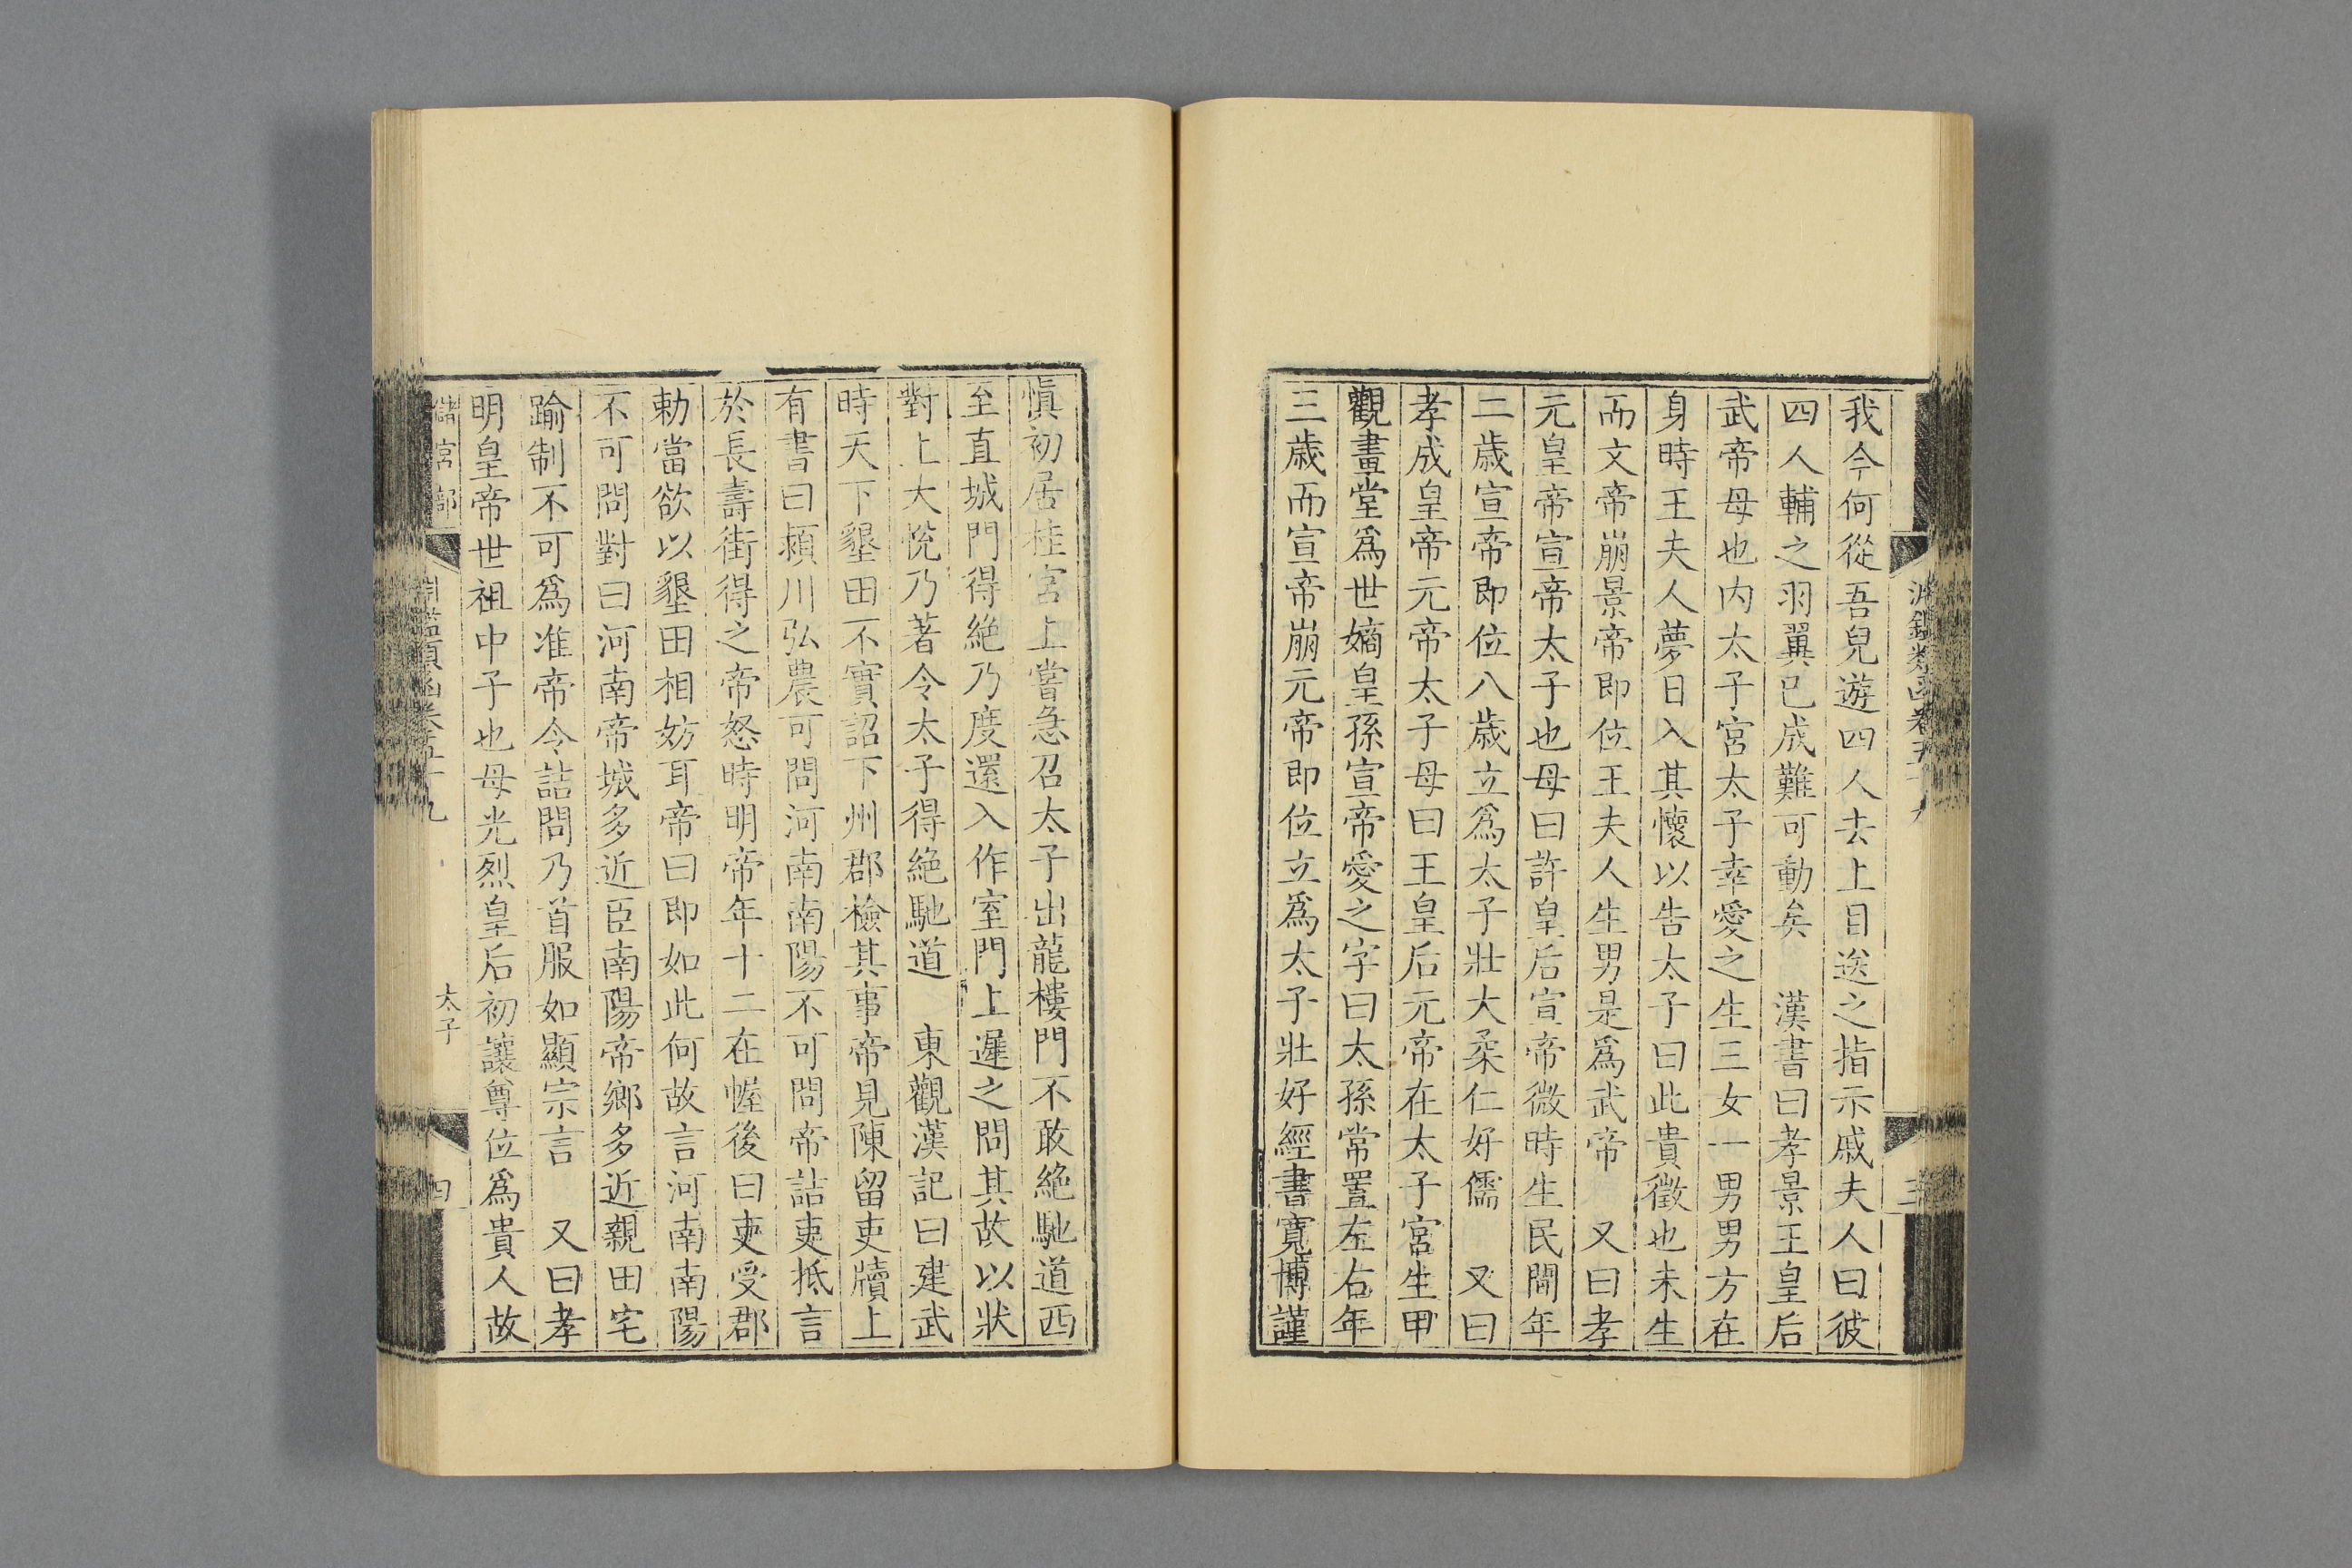 淵鑑類函卷五十九
三
我今何從吾兒遊四人去上目送之指示戚夫人曰彼
四人輔之羽翼已成難可動矣　漢書曰孝景王皇后
武帝母也内太子宮太子幸愛之生三女一男男方在
身時王夫人夢日入其懷以告太子曰此貴徵也未生
而文帝崩景帝即位王夫人生男是爲武帝　又曰孝
元皇帝宣帝太子也母曰許皇后宣帝微時生民間年
二歲宣帝即位八歲立爲太子壯大柔仁好儒　又曰
孝成皇帝元帝太子母曰王皇后元帝在太子宮生甲
觀畫堂爲世嫡皇孫宣帝愛之字曰太孫常置左右年
三歲而宣帝崩元帝即位立爲太子壯好經書寬博謹
慎初居桂宮上嘗急召太子出龍樓門不敢絶馳道西
至直城門得絶乃度還入作室門上遲之問其故以狀
對上大悅乃著令太子得絶馳道　東觀漢記曰建武
時天下墾田不實詔下州郡檢其事帝見陳留吏牘上
有書曰潁川弘農可問河南南陽不可問帝詰吏抵言
於長壽街得之帝怒時明帝年十二在幄後曰吏受郡
勅當欲以墾田相妨耳帝曰即如此何故言河南南陽
不可問對曰河南帝城多近臣南陽帝鄉多近親田宅
踰制不可爲准帝令詰問乃首服如顯宗言　又曰孝
明皇帝世祖中子也母光烈皇后初讓尊位爲貴人故
儲宮部
淵鑑類函卷五十九
太子
四